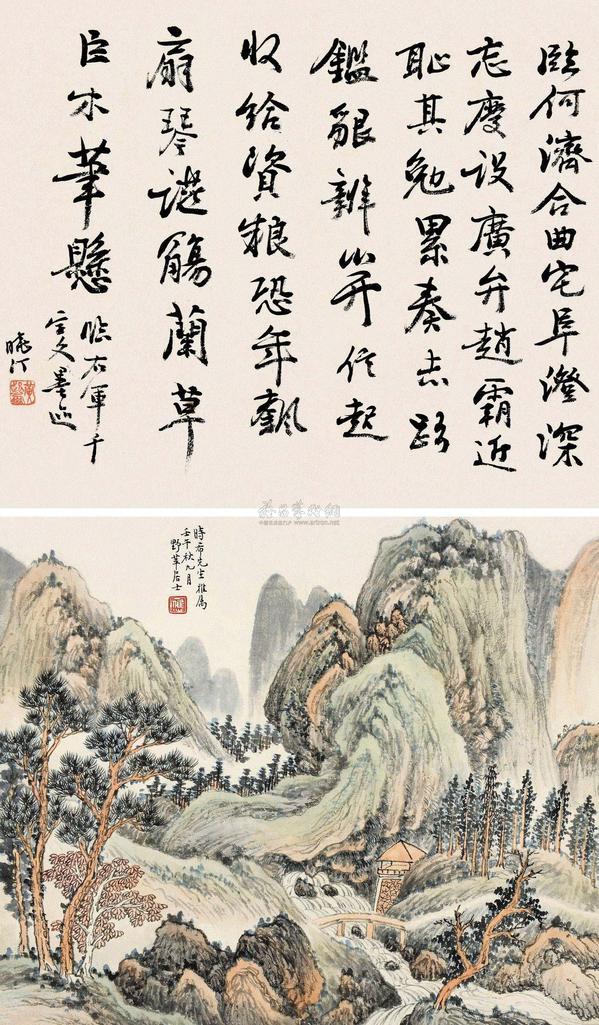 臨何濟合曲宅阜澄深
忘慶設廣弁趙霸近
恥其勉累奏志路
鑑貌辨 并信起
收給資粮恐年飄
扇琴 觴蘭草
巨 筆懸
臨右軍千
字文墨迹
曉汀
時希先生雅屬
壬午秋九月
野華居士
www.artron.net